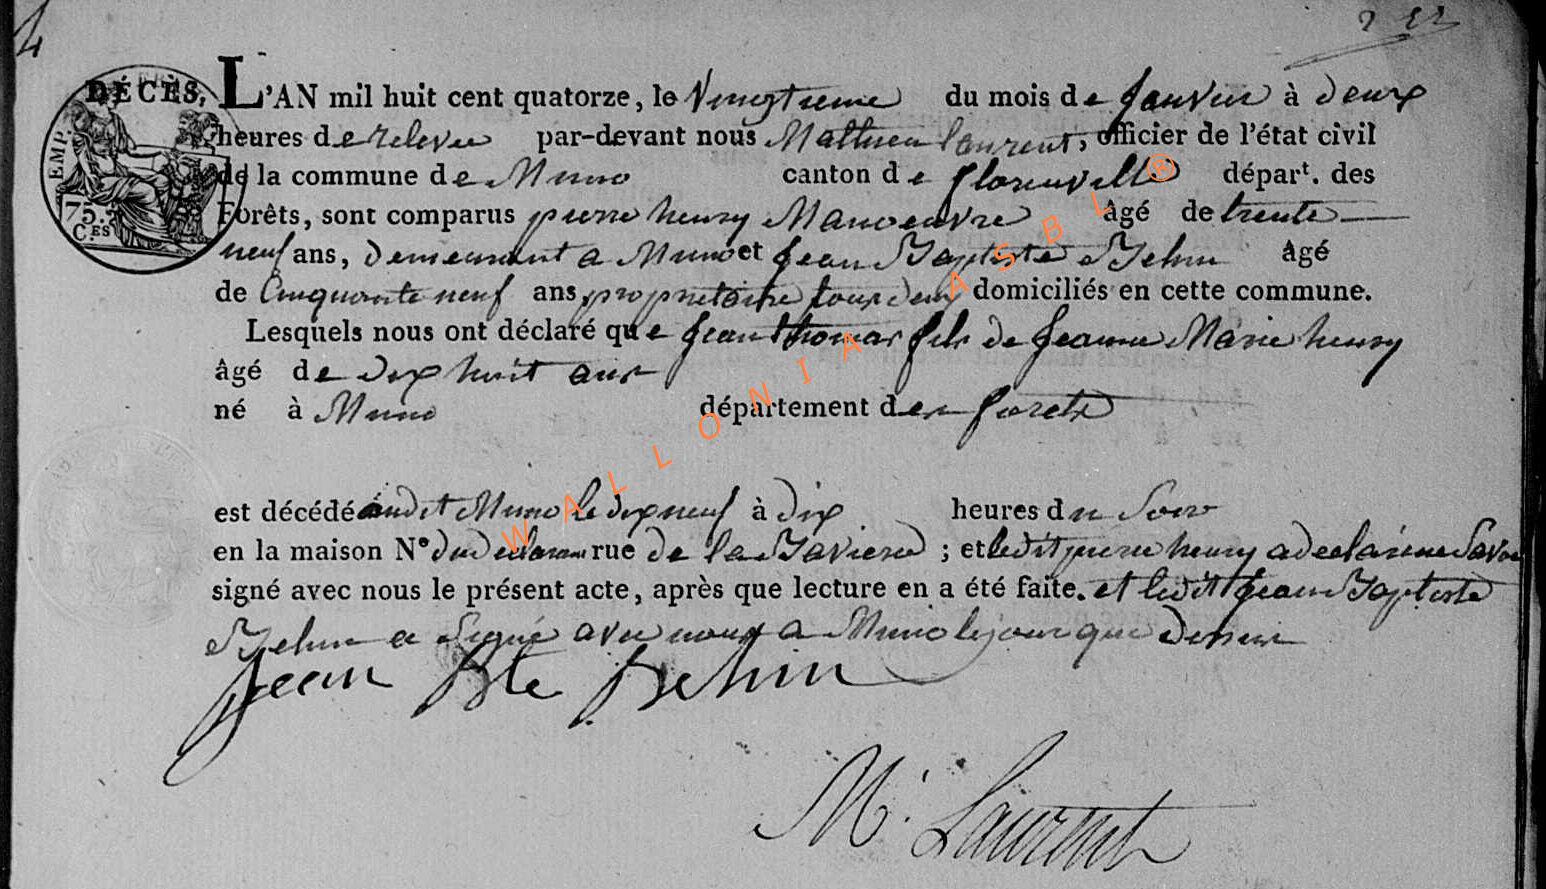 4
DÉCÈS,
EMP.
75.
C.ES
L'AN mil huit cent quatorze, le Vingtieme du mois de Janvier à deux
heures de relevee par-devant nous Mathieu Laurent, officier de l'état civil
de la commune de Muno canton de florenville départ. des
Forêts, sont comparus pierre henry Manoeuvre âgé de trente
neuf ans, demeurant a Muno et Jean Baptiste Behin âgé
de Cinquante neuf ans, proprietaire tous deux domiciliés en cette commune.
Lesquels nous ont déclaré que Jean thomas fils de Jeanne Marie henry
âgé de dix huit ans
né à Muno département des forets
est décédé audit Muno le dix neuf à dix heures du Soir
en la maison N° du declarant rue de la ; et ledit pierre henry a declaré ne Savoir
signé avec nous le présent acte, après que lecture en a été faite. et ledit Jean Baptiste
Behin a Signé avec nous a Muno le jour que dessus
Jean Bte Behin
M. Laurent
WALLONIA ASBL ®